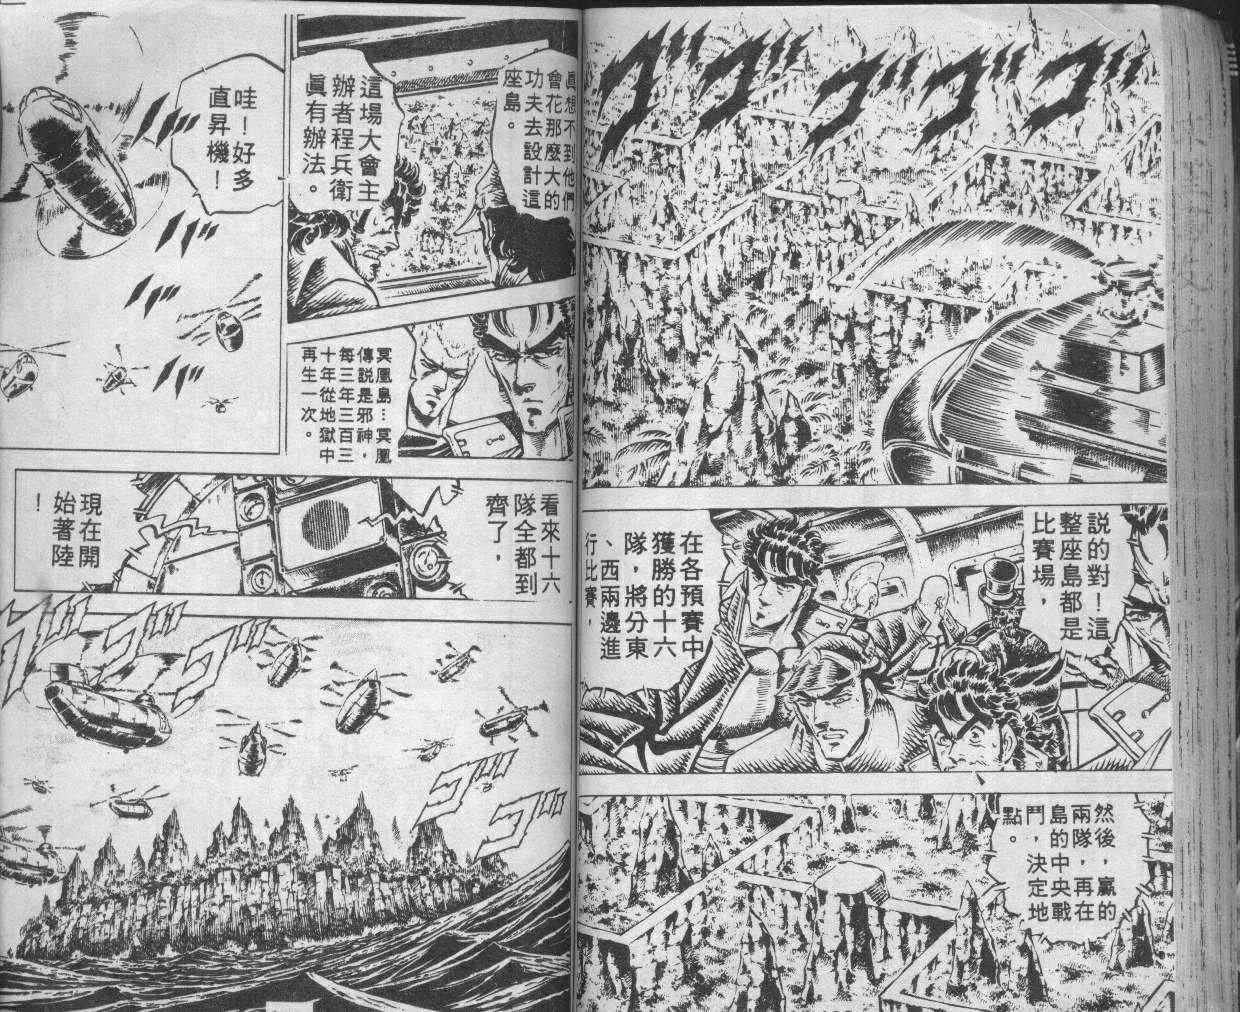 說的對！這
整座島都是
比賽場，
在各預賽中
獲勝的十六
隊，將分東
、西兩邊進
行比賽，
然後，贏的
兩隊，再在
島的中央戰
鬥，決定地
點。
眞想不到他們
會花那麼大的
功夫去設計這
座島。
這場大會主
辦者程兵衛
眞有辦法。
哇！好多
直昇機！
冥凰島…冥凰
傳說是邪神，
每三年三百三
十年從地獄中
再生一次。
看來十六
隊全都到
齊了，
現在開
始著陸
！